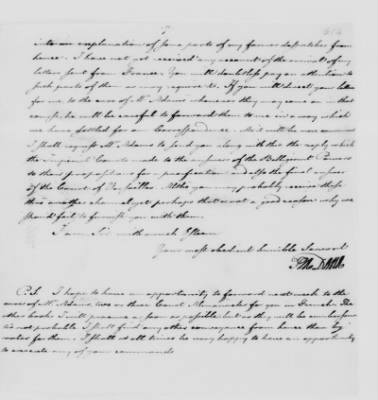 7
into an explanation of some parts of my former dispatches from
hence. I have not yet received any account of the arrival of my
letters sent from France. You will doubtless pay an attention to
such parts of them as may require it. If you will direct your letters
for me to the care of Mr Adams whenever they may come on in that
case he will be careful to forward them to me in a way which
we have settled for our Correspondence. As it will be now convenient
I shall request Mr Adams to send you along with this the reply which
the imperial Courts made to the answers of the Belligerent Powers
to their propositions for a pacification and also the final answer
of the Court of Versailles. Altho you may probably receive these
thro another channel yet perhaps that is not a good reason why we
should fail to furnish you with them.
I am Sir with much Esteem
Your most obedient humble Servant
FRA DANA
P.S. I hope to have an opportunity to forward next week to the
care of Mr Adams, two or three Court Almanacks for you in French. The
other books I will procure as soon as possible but as they will be cumbersome
tis not probable I shall find any other conveyance from hence than by
water for them. I shall at all times be very happy to have an opportunity
to execute any of your commands